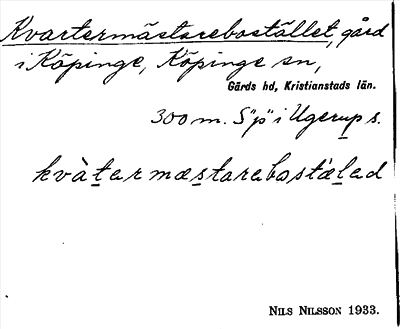 Kvartermästarebostället, gård
i Köpinge, Köpinge sn,
Gärds hd, Kristianstads län.
300 m. S "p" i Ugerup s.
kvàtermæstarebostæ̀led
NILS NILSSON 1933.